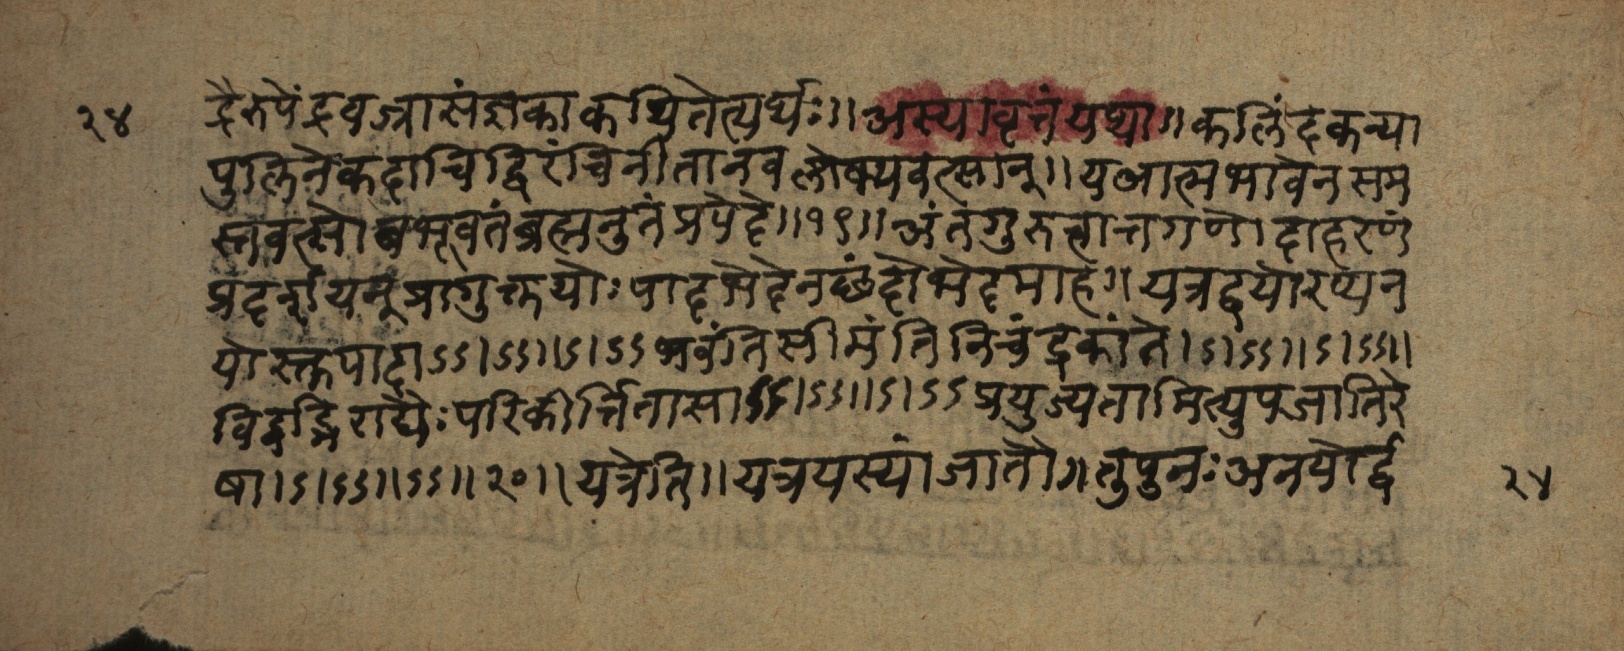 २४
द्रैरुपेंद्रवज्रासंज्ञकाकथितेत्यर्थः।। अस्यावृत्तंयथा।। कलिंदकन्या
पुलिनेकदाचिद्विरंचिनीतानवलोक्यवत्सान्।। यआत्मभावेनसम
स्तवत्सोबभूवतंब्रह्मनुतंप्रपेदे।।१९।। अंतगुरुत्वात्तगणोदाहरणं
प्रदर्शयन्प्रागुक्तयोःपादभेदेनछंदोभेदमाह।। यत्रद्वयोरप्यन
योस्तुपादाऽऽ।ऽऽ।।ऽ।ऽऽभवंतिसीमंतिनिचंद्रकांते।ऽ।ऽऽ।।ऽ।ऽऽ।।
विद्वद्भिराद्यैःपरिकीर्त्तितासाऽऽ।ऽऽ।।ऽ।ऽऽप्रयुज्यतामित्युपजातिरे
षा।ऽ।ऽऽ।।ऽऽ।।२०।।यत्रेति।। यत्रयस्यांजातौ।।तुपुनःअनयोर्द्व
२४